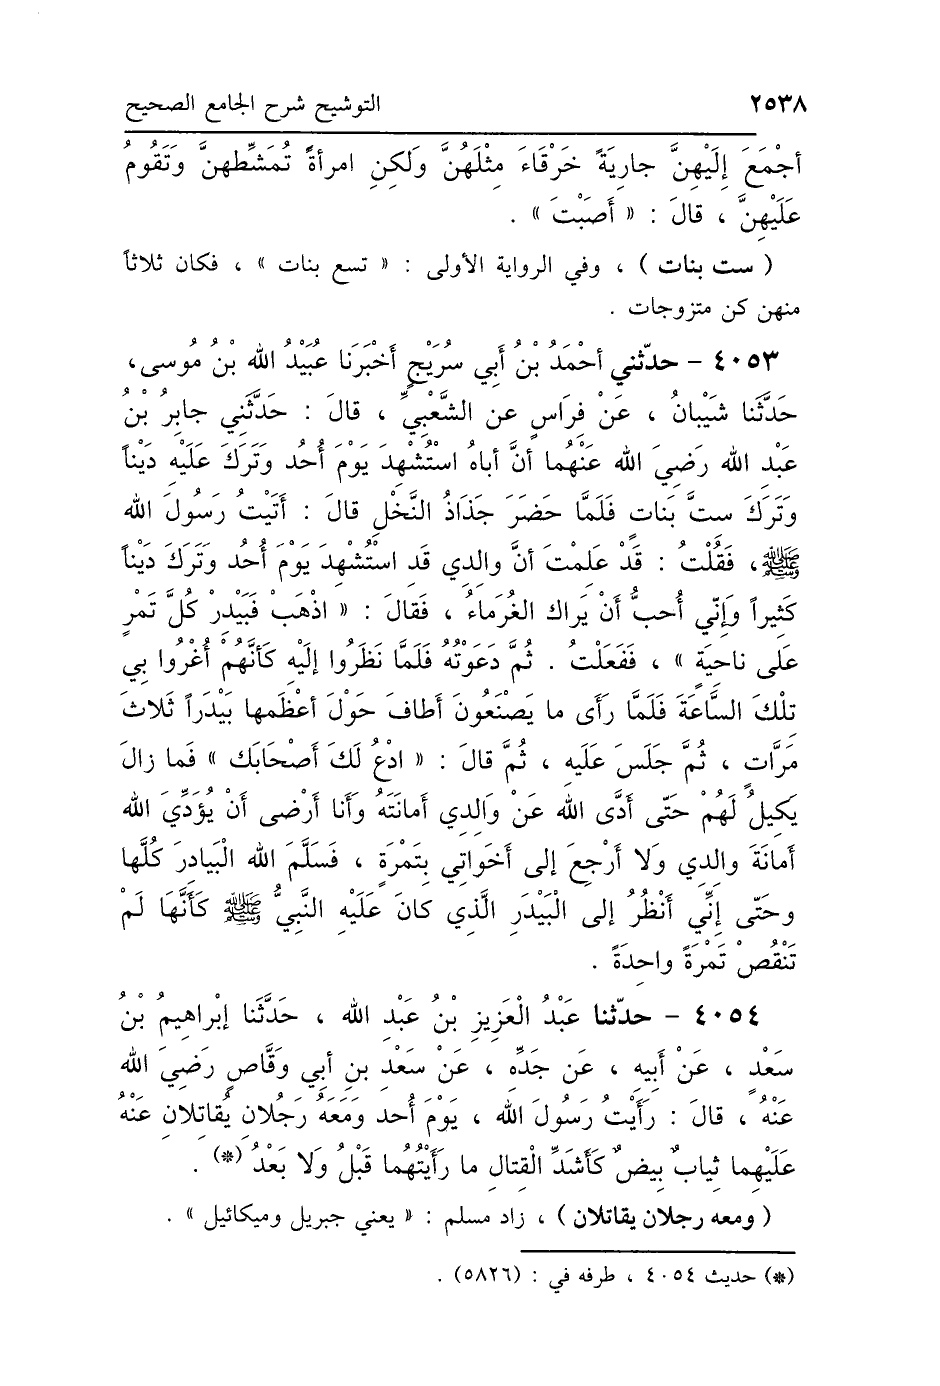 ٢٥٣٨ التوشيح شرح الجامع الصحيح
أجْمَعَ إِلَيْهِنَّ جارِيَةً خَرْقَاءَ مِثْلَهُنَّ وَلَكِنِ امرأةً تُمَشِّطهنَّ وَتَقُومُ
عَلَيْهِنَّ ، قالَ : « أَصَبْتَ » .
( ست بنات ) ، وفي الرواية الأولى : « تسع بنات » ، فكان ثلاثاً
منهن كن متزوجات .
٤٠٥٣ – حدّثني أحْمَدُ بْنُ أَبي سرَيْجٍ أَخْبَرَنَا عُبَيْدُ الله بْنُ مُوسى،
حَدَّثَنا شَيْبانُ ، عَنْ فِرَاسٍ عن الشَّعْبِيِّ ، قالَ : حَدَّثَنِي جابِرُ بْنُ
عَبْدِ الله رَضِيَ الله عَنْهُما أنَّ أباهُ اسْتُشْهِدَ يَوْمَ أُحُدٍ وَتَرَكَ عَلَيْهِ دَيْناً
وَتَرَكَ سِتَّ بَناتٍ فَلَمَّا حَضَرَ جَذَاذُ النَّخْلِ قالَ : أَتَيْتُ رَسُولَ الله
ﷺ، فَقُلْتُ : قَدْ عَلِمْتَ أنَّ والِدِي قَدِ اسْتُشْهِدَ يَوْمَ أُحُدٍ وَتَرَكَ دَيْناً
كَثِيراً وَإِنِّي أُحِبُّ أَنْ يَراكَ الغُرَماءُ ، فَقالَ : « اذْهَبْ فَبَيْدِرْ كُلَّ تَمْرٍ
عَلى ناحِيَةٍ » ، فَفَعَلْتُ . ثُمَّ دَعَوْتُهُ فَلَمَّا نَظَرُوا إِلَيْهِ كَأَنَّهُمْ أُغْرُوا بِي
تِلْكَ السَّاعَةَ فَلَمَّا رَأَى ما يَصْنَعُونَ أَطافَ حَوْلَ أعْظَمِها بَيْدَراً ثَلاثَ
مَرَّاتٍ ، ثُمَّ جَلَسَ عَلَيهِ ، ثُمَّ قالَ : « ادْعُ لَكَ أَصْحَابَكَ » فَما زالَ
يَكِيلُ لَهُمْ حَتّى أَدَّى الله عَنْ وَالِدِي أمانَتَهُ وَأَنا أَرْضى أَنْ يُؤَدِّيَ الله
أمانَةَ والِدِي وَلا أَرْجِعَ إلى أَخَواتِي بِتَمْرَةٍ ، فَسَلَّمَ الله الْبَيادِرَ كُلَّها
وحَتّى إِنِّي أَنْظُرُ إلى الْبَيْدَرِ الَّذِي كانَ عَلَيْهِ النَّبِيُّ ﷺ كَأَنَّهَا لَمْ
تَنْقُصْ تَمْرَةً واحِدَةً .
٤٠٥٤ – حدّثنا عَبْدُ الْعَزِيزِ بْنُ عَبْدِ الله ، حَدَّثَنا إبْراهِيمُ بْنُ
سَعْدٍ ، عَنْ أبِيهِ ، عَن جَدِّهِ ، عَنْ سَعْدِ بنِ أبي وَقَّاصٍ رَضِيَ الله
عَنْهُ ، قالَ : رَأَيْتُ رَسُولَ الله ، يَوْمَ أحد وَمَعَهُ رَجُلانِ يُقاتلانِ عَنْهُ
عَلَيْهِما ثِيابٌ بِيضٌ كَأَشَدِّ الْقِتالِ ما رَأَيْتُهُما قَبْلُ وَلا بَعْدُ (*) .
( ومعه رجلان يقاتلان ) ، زاد مسلم : « يعني جبريل وميكائيل » .
(*) حديث ٤٠٥٤ ، طرفه في : (٥٨٢٦) .